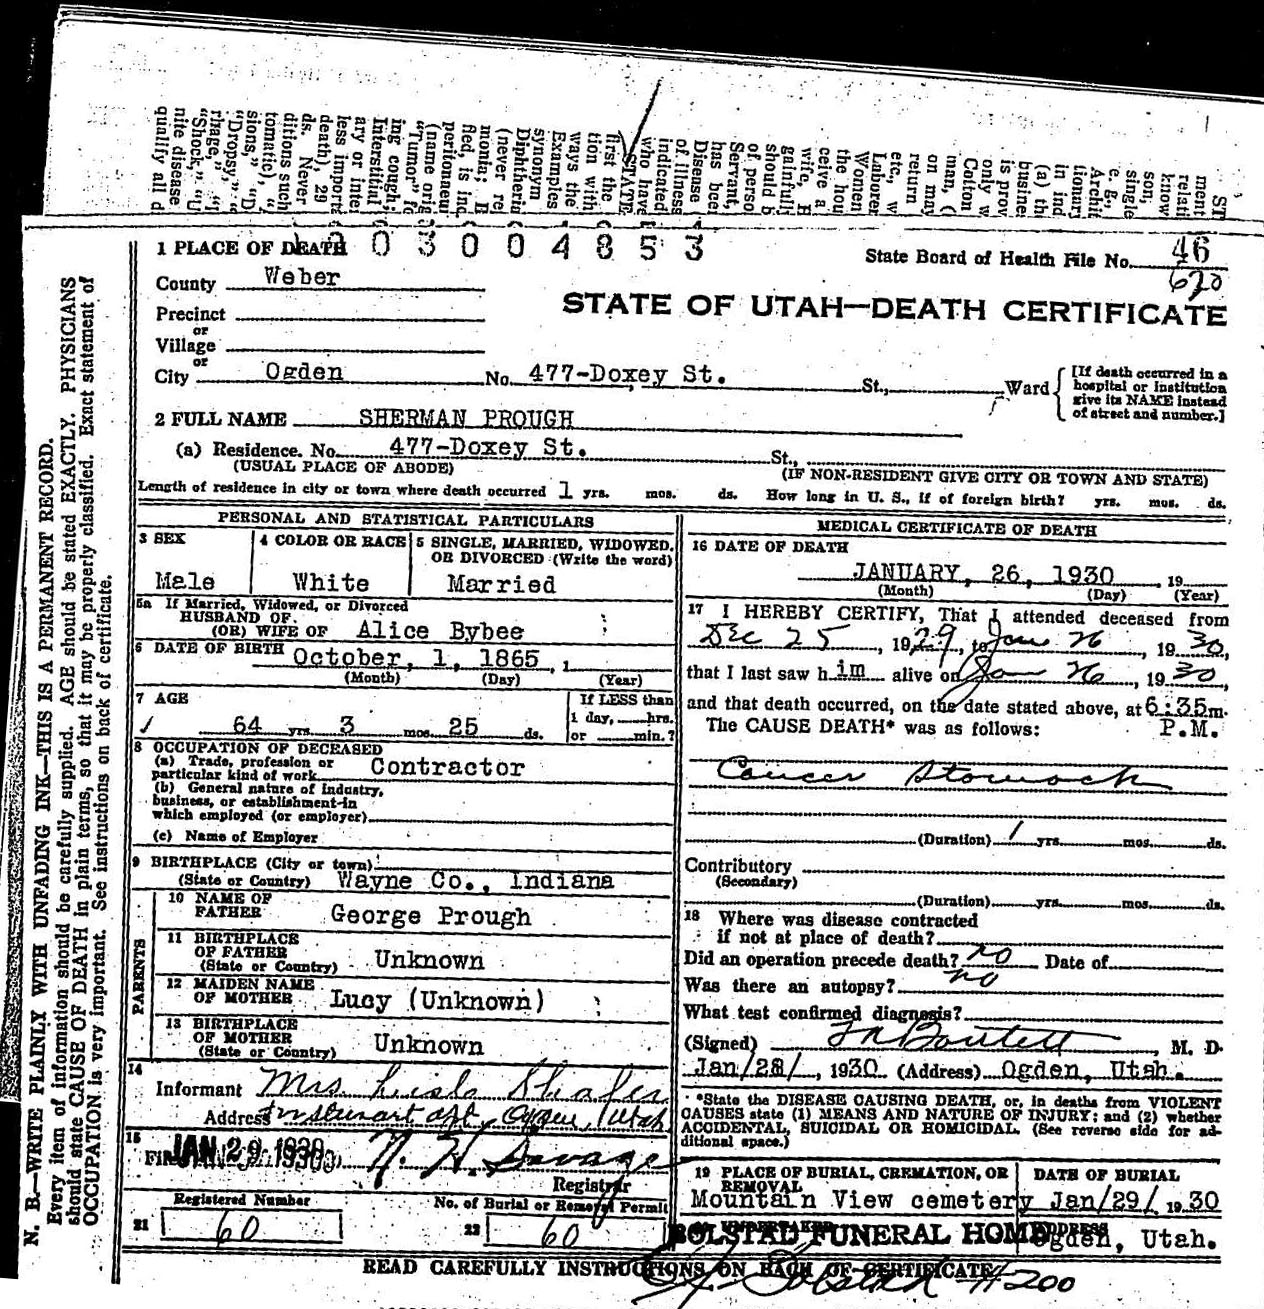 ST
ment
relati
know
son,
single
e. g.,
Archit
tionary
in ind
(a) th
busine
is prov
only w
Cotton
man, (
on may
return
etc., w
Laborer
Women
the hou
ceive a
wife, H
gainfull
should b
of perso
Servant,
has bee
Disease
of illness
indicated
who have
STATE
first the
tion with
ways the
Examples
synonym
Diphtheri
(never re
monia; B
fied, is inc
peritoneum
(name orig
"Tumor" fo
ing cough;
Interstitial
ary or inter
less importa
death), 29
ds. Never
ditions such
tomatic), "
sions," "D
"Dropsy,"
rhage,"
"Shock," "U
nite disease
qualify all d
N. B.—WRITE PLAINLY WITH UNFADING INK—THIS IS A PERMANENT RECORD.
Every item of information should be carefully supplied. AGE should be stated EXACTLY. PHYSICIANS
should state CAUSE OF DEATH in plain terms, so that it may be properly classified. Exact statement of
OCCUPATION is very important. See instructions on back of certificate.
030004853
1 PLACE OF DEATH
State Board of Health File No. 46
620
County Weber
STATE OF UTAH—DEATH CERTIFICATE
Precinct
or
Village
or
City Ogden No. 477-Doxey St. St., Ward
[If death occurred in a
hospital or institution
give its NAME instead
of street and number.]
2 FULL NAME SHERMAN PROUGH
(a) Residence. No. 477-Doxey St. St.,
(USUAL PLACE OF ABODE) (IF NON-RESIDENT GIVE CITY OR TOWN AND STATE)
Length of residence in city or town where death occurred 1 yrs. mos. ds. How long in U. S., if of foreign birth? yrs. mos. ds.
PERSONAL AND STATISTICAL PARTICULARS
3 SEX
Male
4 COLOR OR RACE
White
5 SINGLE, MARRIED, WIDOWED,
OR DIVORCED (Write the word)
Married
5a If Married, Widowed, or Divorced
HUSBAND OF
(OR) WIFE OF Alice Bybee
6 DATE OF BIRTH October, 1, 1865, 1
(Month) (Day) (Year)
7 AGE
64 yrs 3 mos. 25 ds.
If LESS than
1 day, hrs.
or min.?
8 OCCUPATION OF DECEASED
(a) Trade, profession or
particular kind of work Contractor
(b) General nature of industry,
business, or establishment-in
which employed (or employer)
(c) Name of Employer
9 BIRTHPLACE (City or town)
(State or Country) Wayne Co., Indiana
PARENTS
10 NAME OF
FATHER George Prough
11 BIRTHPLACE
OF FATHER
(State or Country) Unknown
12 MAIDEN NAME
OF MOTHER Lucy (Unknown)
13 BIRTHPLACE
OF MOTHER
(State or Country) Unknown
14
Informant Mrs.
Address Stewart Apt. Ogden, Utah
15
JAN 29 1930 N. H. Savage
Registrar
Registered Number
21 60
No. of Burial or Removal Permit
22 60
MEDICAL CERTIFICATE OF DEATH
16 DATE OF DEATH
JANUARY, 26, 1930, 19
(Month) (Day) (Year)
17 I HEREBY CERTIFY, That I attended deceased from
Dec 25, 1929, to Jan 26, 1930,
that I last saw him alive on Jan 26, 1930,
and that death occurred, on the date stated above, at 6:35m.
The CAUSE DEATH* was as follows: P.M.
Cancer Stomach
(Duration) 1 yrs. mos. ds.
Contributory
(Secondary)
(Duration) yrs. mos. ds.
18 Where was disease contracted
if not at place of death?
Did an operation precede death? no Date of
Was there an autopsy? no
What test confirmed diagnosis?
(Signed) M. D.
Jan/28/, 1930 (Address) Ogden, Utah.
*State the DISEASE CAUSING DEATH, or, in deaths from VIOLENT
CAUSES state (1) MEANS AND NATURE OF INJURY; and (2) whether
ACCIDENTAL, SUICIDAL OR HOMICIDAL. (See reverse side for ad-
ditional space.)
19 PLACE OF BURIAL, CREMATION, OR
REMOVAL
Mountain View cemetery
DATE OF BURIAL
Jan/29/ 1930
UNDERTAKER
BOLSTAD FUNERAL HOME
ADDRESS
Ogden, Utah.
READ CAREFULLY INSTRUCTIONS ON BACK OF CERTIFICATE
#200